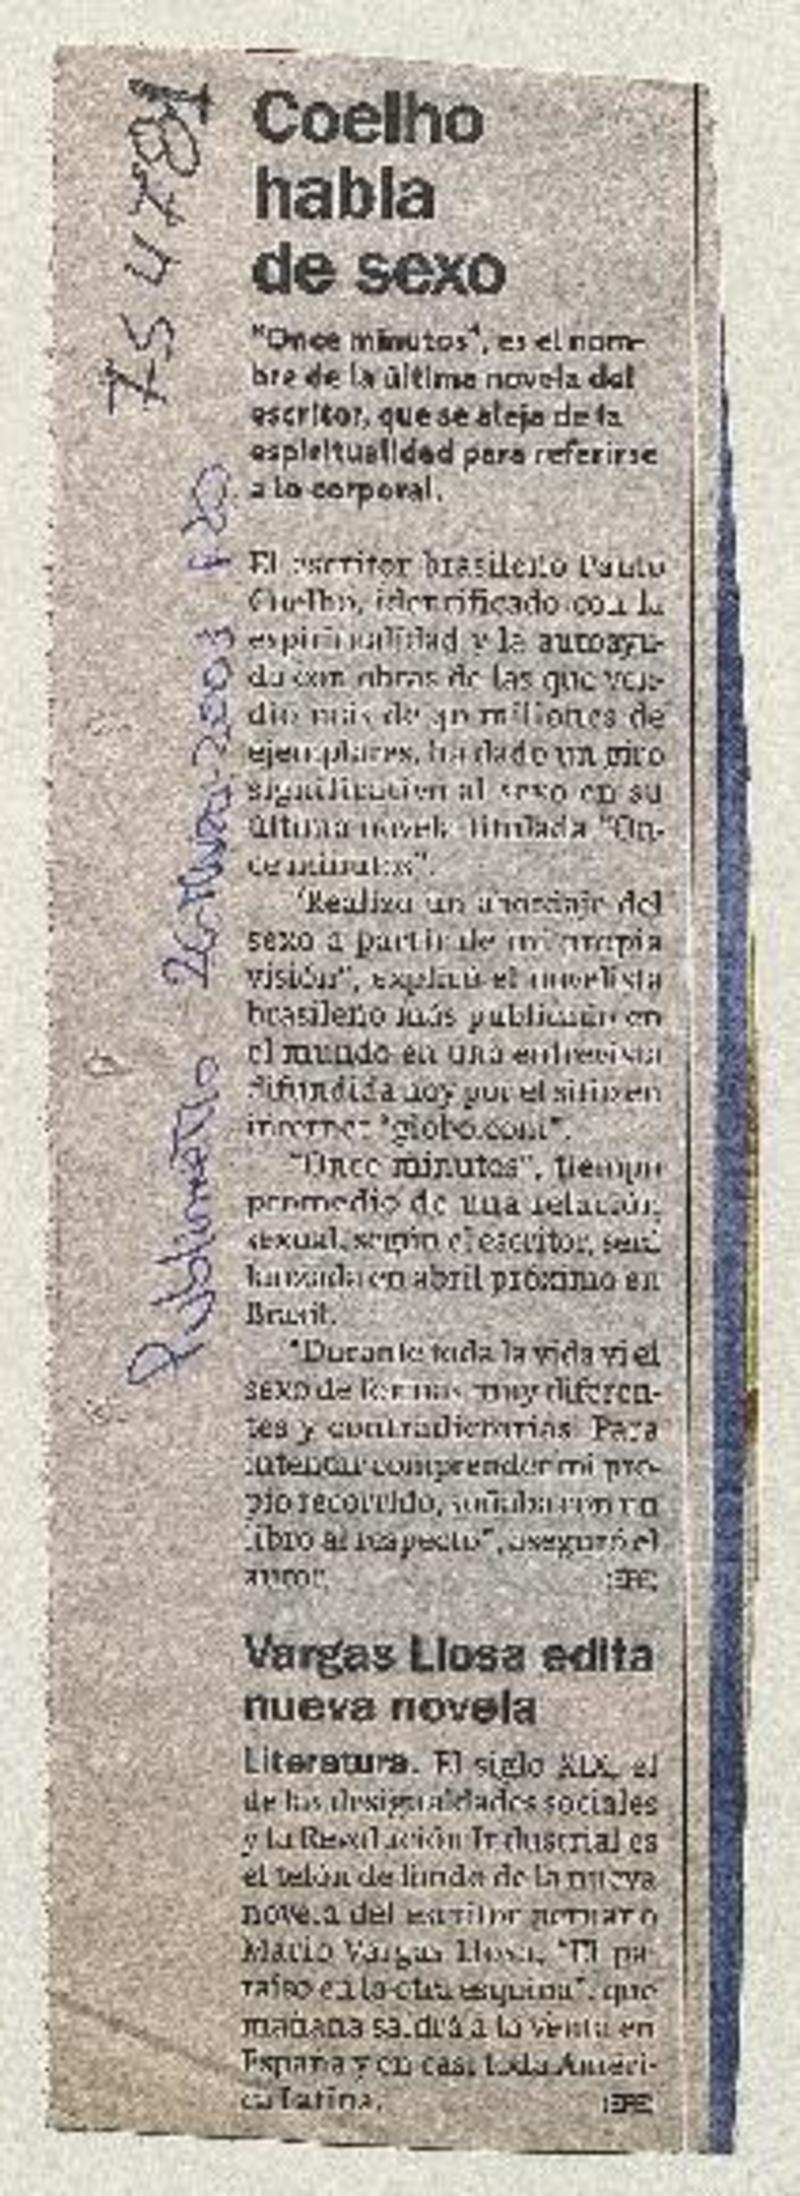 Coelho
habla
de sexo
"Once minutos", es el nom-
bre de la última novela del
escritor, que se aleja de la
espiritualidad para referirse
a lo corporal.
El escritor brasileño Paulo
Coelho, identificado con la
espiritualidad y la autoayu-
da con obras de las que ven-
dió más de 40 millones de
ejemplares, ha dado un giro
significativo al sexo en su
última novela titulada "On-
ce minutos".
"Realizo un abordaje del
sexo a partir de mi propia
visión", explicó el novelista
brasileño más publicado en
el mundo en una entrevista
difundida hoy por el sitio en
internet "globo.com".
"Once minutos", tiempo
promedio de una relación
sexual, según el escritor, será
lanzada en abril próximo en
Brasil.
"Durante toda la vida vi el
sexo de formas muy diferen-
tes y contradictorias. Para
intentar comprender mi pro-
pio recorrido, soñaba con un
libro al respecto", aseguró el
autor. (EFE)
Vargas Llosa edita
nueva novela
Literatura. El siglo XIX, el
de las desigualdades sociales
y la Revolución Industrial es
el telón de fondo de la nueva
novela del escritor peruano
Mario Vargas Llosa, "El pa-
raíso en la otra esquina", que
mañana saldrá a la venta en
España y en casi toda Améri-
ca Latina. (EFE)
754781
Publimetro 26-Marzo-2003 P.20